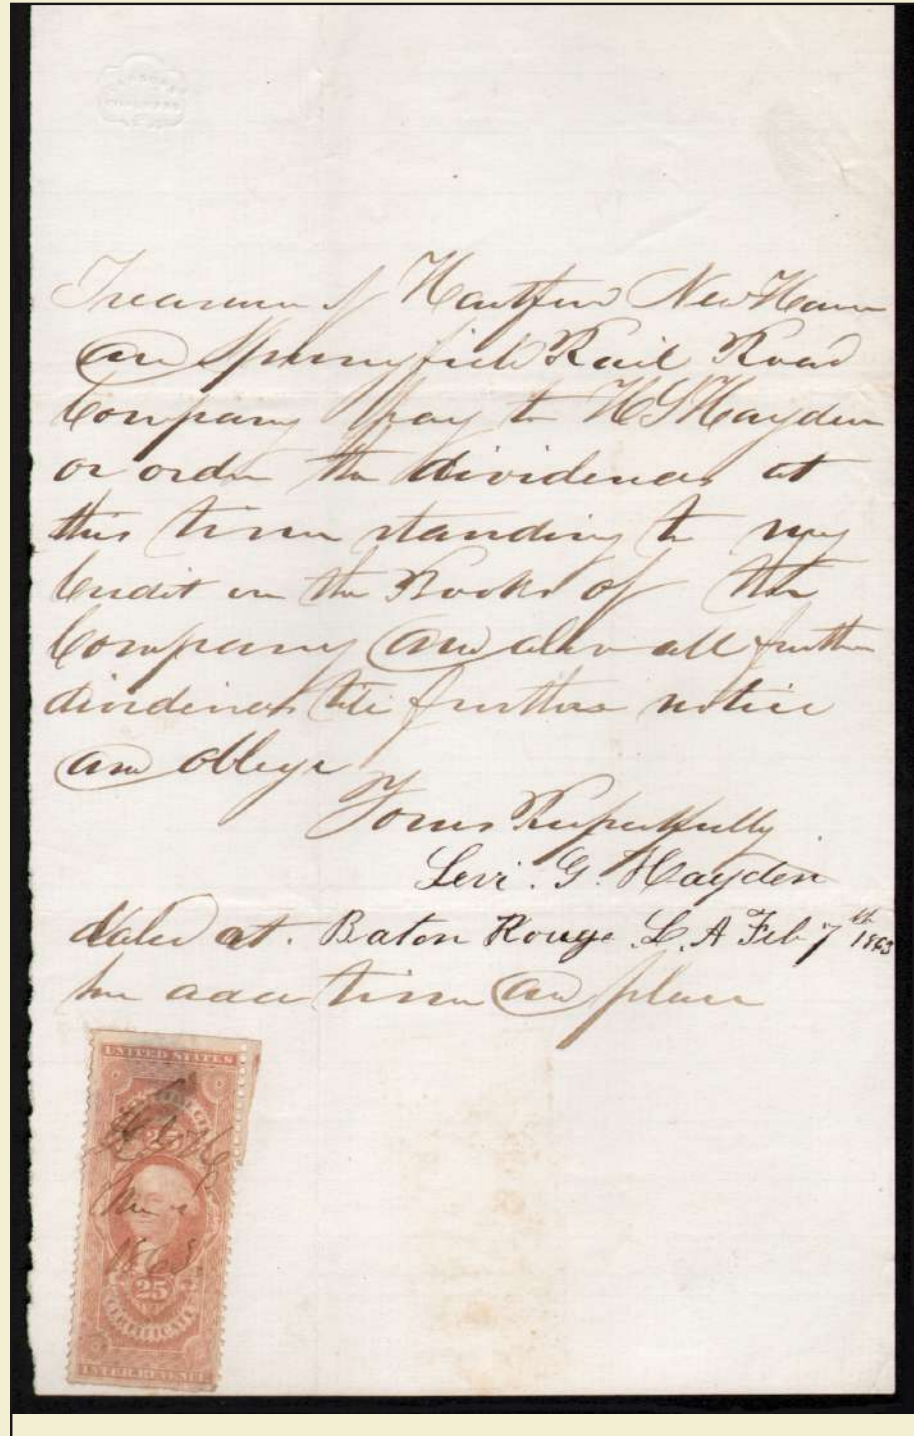 Treasurer of Hartford New Haven
and Springfield Rail Road
Company pay to H S Hayden
or order the dividends at
this time standing to my
Credit on the Books of the
Company and also all further
dividends till further notice
and oblige
Yours Respectfully
Levi. G. Hayden
Dated at. Baton Rouge L.A Feb 7th 1863
time and place
UNITED STATES
25
H S H
1863.
25
CERTIFICATE
INTER. REVENUE